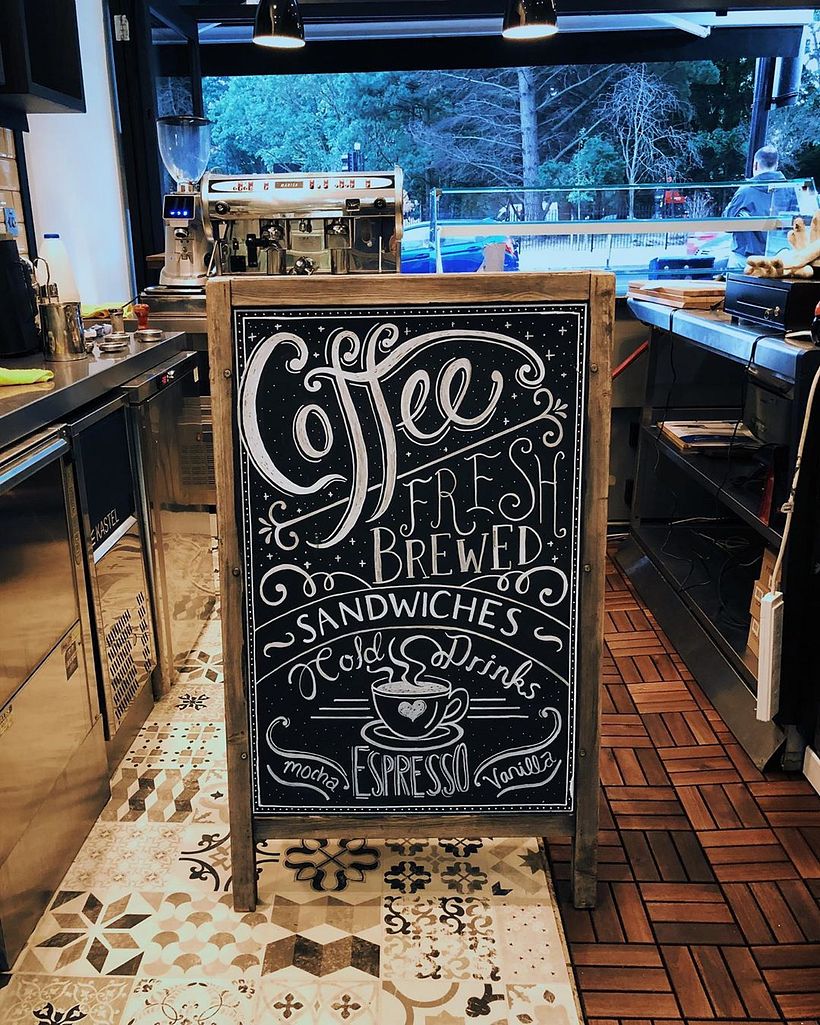 Coffee
FRESH
BREWED
SANDWICHES
Hold Drinks
mocha ESPRESSO Vanilla
KASTEL